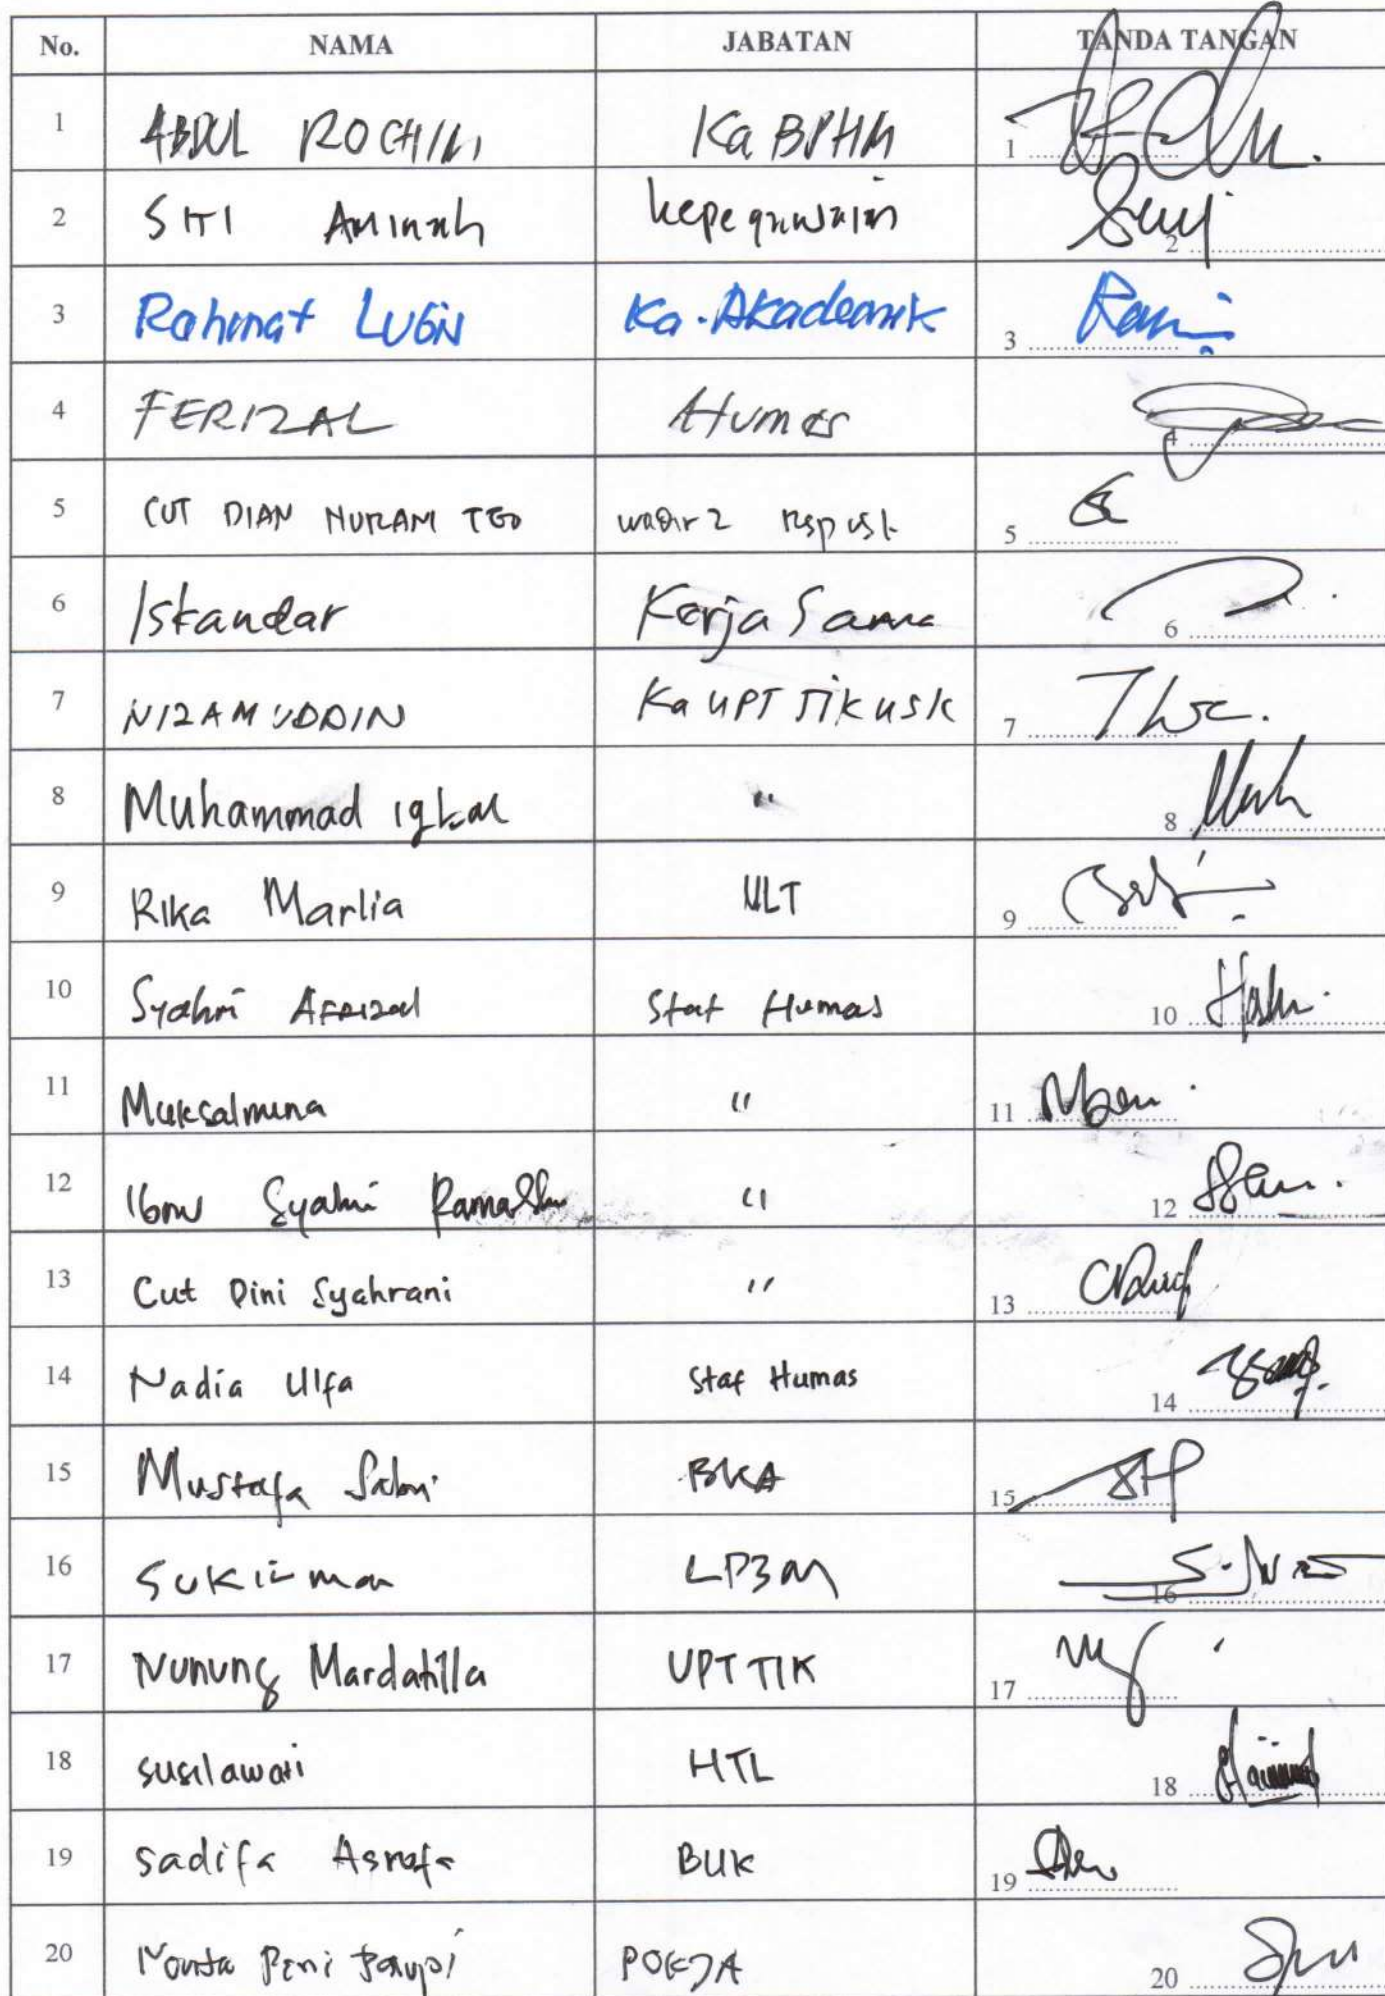 No. NAMA JABATAN TANDA TANGAN
1 ABDUL ROCHIM Ka BPHM 1
2 SITI Aminah kepegawaian 2
3 Rahmat Lubis Ka. Akademik 3
4 FERIZAL Humas 4
5 CUT DIAN NURANI TEO wadir 2 5
6 Iskandar Kerja Sama 6
7 NIZAMUDDIN Ka UPT TIK USK 7
8 Muhammad iqbal " 8
9 Rika Marlia ULT 9
10 Syahri Afrizal Staf Humas 10
11 Muksalmina " 11
12 Ibnu Syahri Ramadhan " 12
13 Cut Dini Syahrani " 13
14 Nadia Ulfa Staf Humas 14
15 Mustafa Sabri BKA 15
16 Sukirman LP3M 16
17 Nunung Mardatilla UPT TIK 17
18 susilawati HTL 18
19 Sadifa Asrofa BUK 19
20 POKJA 20